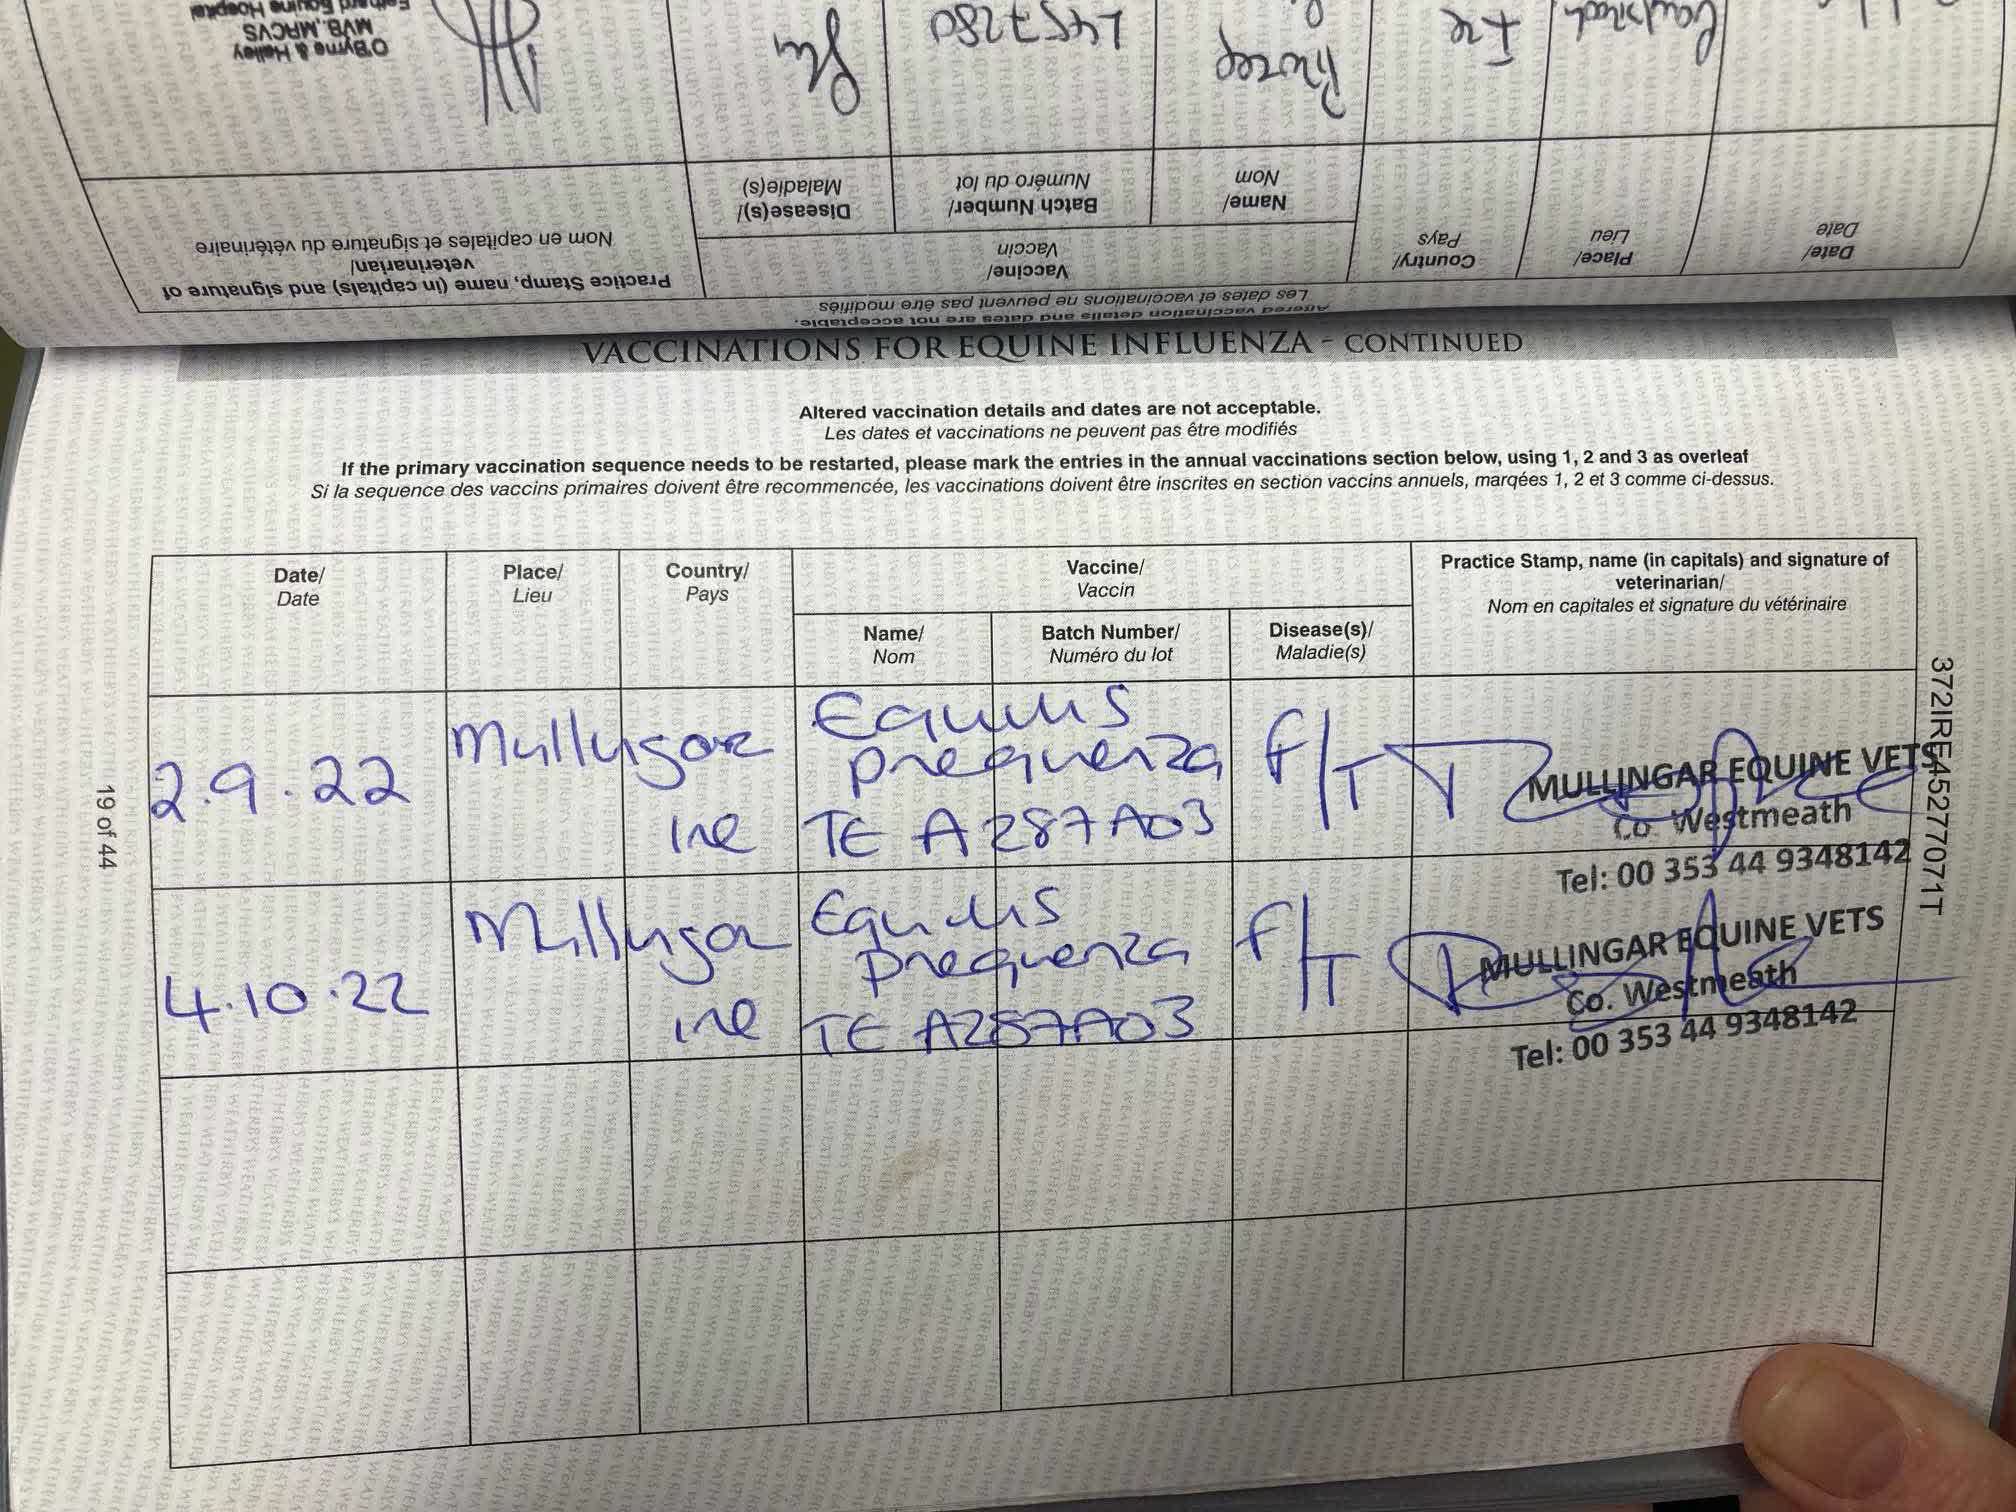 O'Byrne & Halley
MVB, MRCVS
Equine Hospital
L457280
Ire
Practice Stamp, name (in capitals) and signature of
veterinarian/
Nom en capitales et signature du vétérinaire
Vaccine/
Vaccin
Disease(s)/
Maladie(s)
Batch Number/
Numéro du lot
Name/
Nom
Country/
Pays
Place/
Lieu
Date/
Date
Altered vaccination details and dates are not acceptable.
Les dates et vaccinations ne peuvent pas être modifiés
VACCINATIONS FOR EQUINE INFLUENZA - CONTINUED
Altered vaccination details and dates are not acceptable.
Les dates et vaccinations ne peuvent pas être modifiés
If the primary vaccination sequence needs to be restarted, please mark the entries in the annual vaccinations section below, using 1, 2 and 3 as overleaf
Si la sequence des vaccins primaires doivent être recommencée, les vaccinations doivent être inscrites en section vaccins annuels, marqées 1, 2 et 3 comme ci-dessus.
Date/
Date
Place/
Lieu
Country/
Pays
Vaccine/
Vaccin
Name/
Nom
Batch Number/
Numéro du lot
Disease(s)/
Maladie(s)
Practice Stamp, name (in capitals) and signature of
veterinarian/
Nom en capitales et signature du vétérinaire
2.9.22
Mullingar
Ire
Equilis
prequenza
TE A287A03
F/T
MULLINGAR EQUINE VETS
Co. Westmeath
Tel: 00 353 44 9348142
4.10.22
Mullingar
Ire
Equilis
prequenza
TE A287A03
F/T
MULLINGAR EQUINE VETS
Co. Westmeath
Tel: 00 353 44 9348142
19 of 44
372IRE45277071T